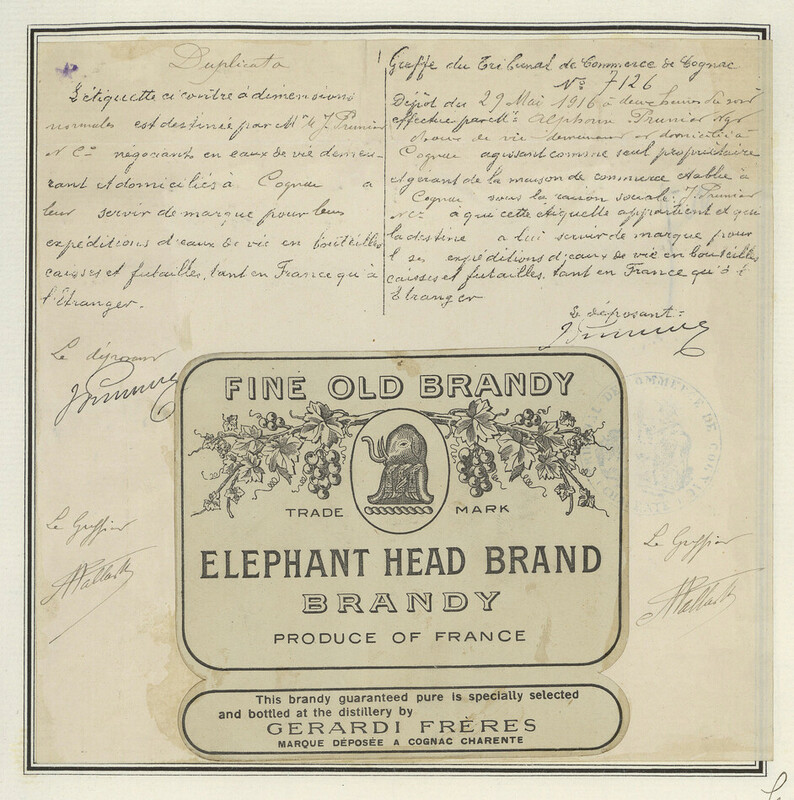 Duplicata
L'étiquette ci contre à dimensions
normales est destinée par Mrs J. Prunier
& Cie négociants en eaux de vie demeu-
rant et domiciliés à Cognac à
leur servir de marque pour leurs
expéditions d'eaux de vie en bouteilles
caisses et futailles, tant en France qu'à
l'Etranger.
Le déposant
J Prunier
Greffe du Tribunal de Commerce de Cognac
No 7126
Dépôt du 29 Mai 1916 à deux heures du soir
effectué par Mr Alphonse Prunier Ngt
eaux de vie demeurant et domicilié à
Cognac agissant comme seul propriétaire
et gérant de la maison de commerce établie à
Cognac sous la raison sociale: J. Prunier
& Cie à qui cette étiquette appartient et qui
la destine à lui servir de marque pour
ses expéditions d'eaux de vie en bouteilles
caisses et futailles, tant en France qu'à l'
Etranger
Le déposant:
J Prunier
FINE OLD BRANDY
TRADE MARK
ELEPHANT HEAD BRAND
BRANDY
PRODUCE OF FRANCE
This brandy guaranteed pure is specially selected
and bottled at the distillery by
GERARDI FRÈRES
MARQUE DÉPOSÉE A COGNAC CHARENTE
Le Greffier
Le Greffier
DE COMMERCE DE COGNAC